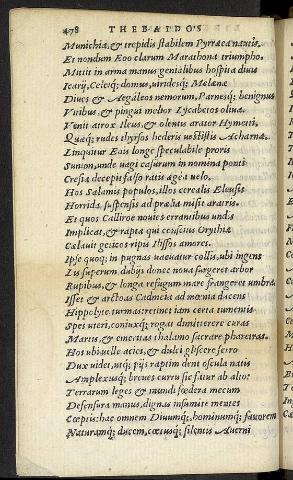 478 THEBAIDOS
Munichia, & trepidis stabilem Pyræea nautis,
Et nondum Eoo clarum Marathona triumpho.
Mittit in arma manus genialibus hospita diuis
Icarij, Celeiq; domus, uiridesq; Melenæ
Diues & Aegaleos nemorum, Parnesq; benignus
Vitibus, & pinguis melior Lycabetos oliua.
Venit atrox Ileus, & olentis arator Hymetti,
Quæq; rudes thyrsos hederis uestistis Acharnæ.
Linquitur Eois longe speculabile proris
Sunion, unde uagi casurum in nomina ponti
Cresia decepit falso ratis ægea uelo.
Hos Salamis populos, illos cerealis Eleusis
Horrida suspensis ad prælia misit aratris.
Et quos Calliroe nouies errantibus undis
Implicat, & raptæ qui conscius Orythiæ
Cælauit geticos ripis Ilissos amores.
Ipse quoq; in pugnas uacuatur collis, ubi ingens
Lis superum dubijs donec noua surgeret arbor
Rupibus, & longa refugum mare frangeret umbra.
Isset & arctoas Cadmeia ad mœnia ducens
Hippolyte turmas: retinet iam certa tumentis
Spes uteri, coniuxq; rogat dimittere curas
Martis, & emeritas thalamo sacrare pharetras.
Hos ubi uelle acies, & dulci gliscere ferro
Dux uidet, utq; pijs raptim dent oscula natis
Amplexusq; breues curru sic fatur ab alto:
Terrarum leges & mundi fœdera mecum
Defensura manus, dignas insumite mentes
Cœptis: hac omnem Diuumq; hominumq; fauorem
Naturamq; ducem, cœtusq; silentis Auerni